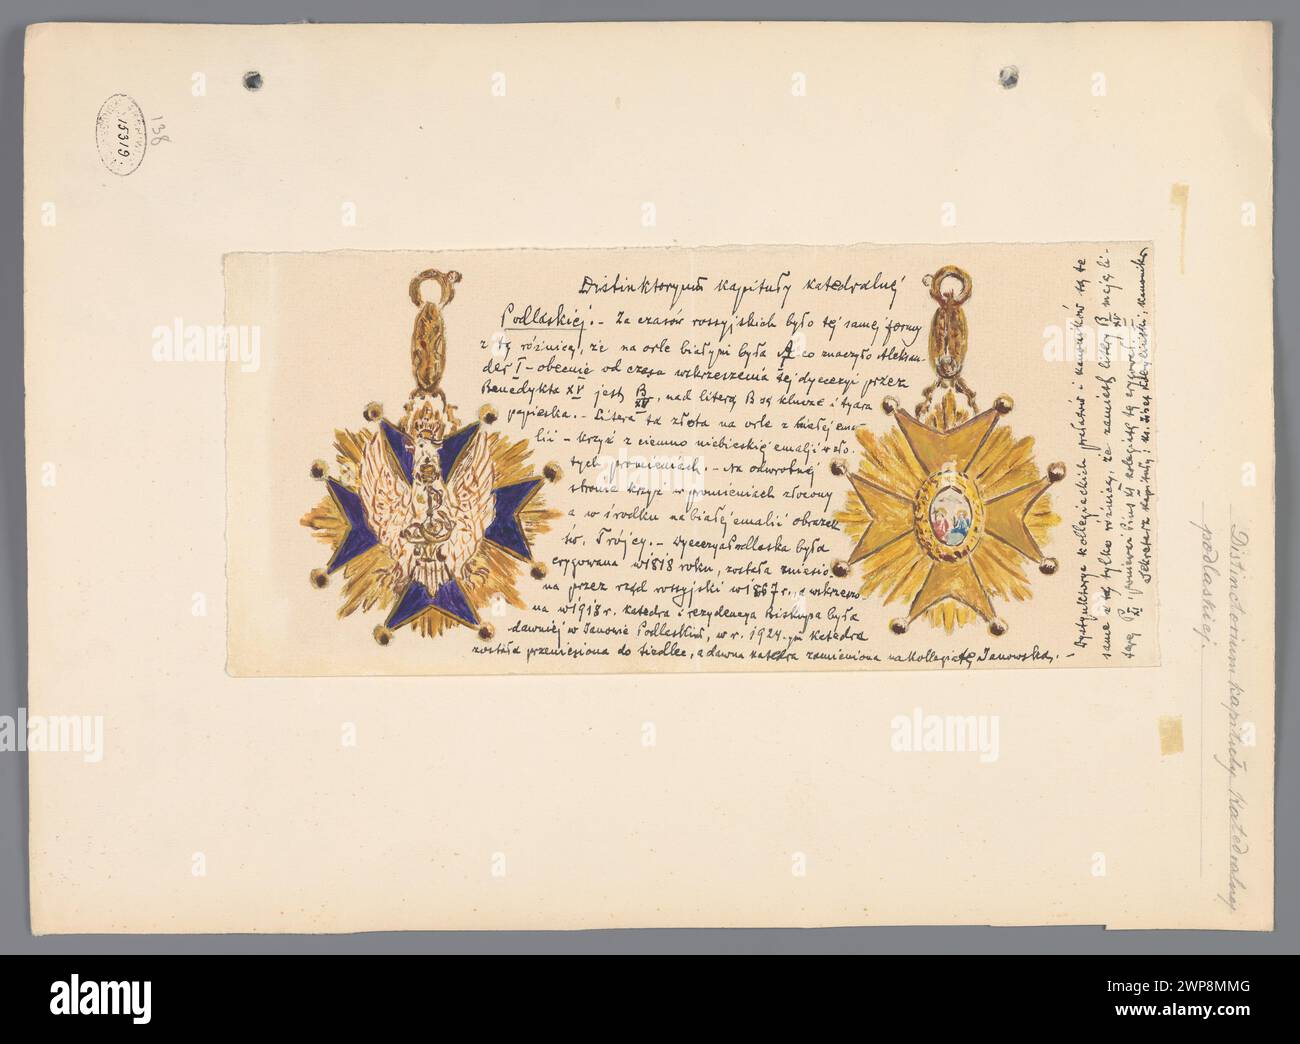 Distinktoryum kapituły katedralnej
Podlaskiej. – Za czasów rossyjskich było tej samej formy
z tą różnicą, że na orle białym była A co znaczyło Aleksan-
der I – obecnie od czasu wskrzeszenia tej dyecezyi przez
Benedykta XV jest B XV, nad literą B są klucze i tyara
papieska. – Litera ta złota na orle z białej ema-
lii – krzyż z ciemno niebieskiej emalji w zło-
tych promieniach. – Na odwrotnej
stronie krzyż w promieniach złocony
a w środku na białej emalii obrazek
św. Trójcy. – Dyecezya Podlaska była
erygowana w 1818 roku, została zniesio-
na przez rząd rossyjski w 1867 r., a wskrzeszo-
na w 1918 r. katedra i rezydencya Biskupa była
dawniej w Janowie Podlaskim, w r. 1924-ym katedra
została przeniesiona do Siedlec, a dawna katedra zamieniona na Kollegiatę Janowską. –
Dystynktorya kollegiackich prałatów i kanoników są te
same z tą tylko różnicą, że zamiast litery B XV mają li-
terę P XI, ponieważ Pius XI kolegiatę tę erygował.
Sekretarz kapituły, ks. Józef, kanonik
Distinctorium kapituły katedralnej
podlaskiej.
138
15319
alamy
Image ID: 2WP8MMG
www.alamy.com